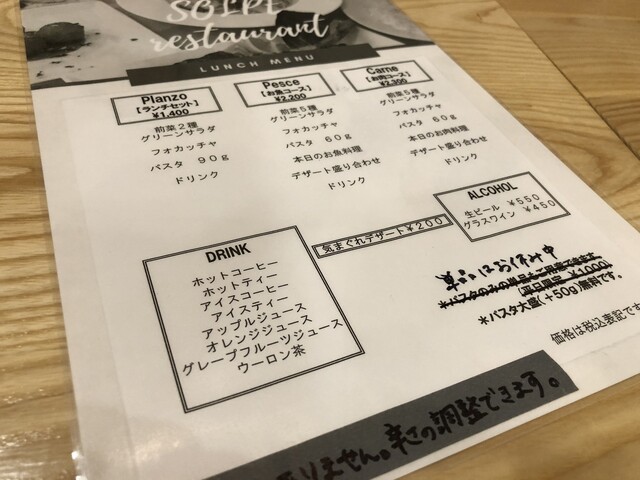 restaurant
LUNCH MENU
Pianzo
【ランチセット】
¥1,400
前菜2種
グリーンサラダ
フォカッチャ
パスタ 90g
ドリンク
Pesce
【お魚コース】
¥2,200
前菜5種
グリーンサラダ
フォカッチャ
パスタ 60g
本日のお魚料理
デザート盛り合わせ
ドリンク
Carne
【お肉コース】
¥2,300
前菜5種
グリーンサラダ
フォカッチャ
パスタ 60g
本日のお肉料理
デザート盛り合わせ
ドリンク
ALCOHOL
生ビール ¥550
グラスワイン ¥450
気まぐれデザート¥200
DRINK
ホットコーヒー
ホットティー
アイスコーヒー
アイスティー
アップルジュース
オレンジジュース
グレープフルーツジュース
ウーロン茶
単品はお休み中
*パスタのみの単品もご用意できます。
【平日限定 ¥1000】
*パスタ大盛(+50g)無料です。
価格は税込表記です
りません。辛さの調整できます。